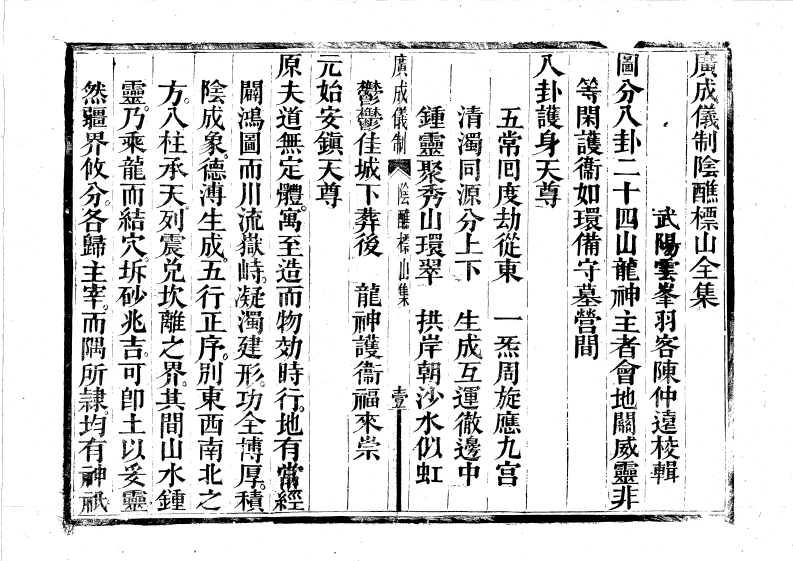 廣成儀制陰醮標山全集
武陽雲峯羽客陳仲遠校輯
圖分八卦二十四山龍神主者會地關威靈非
等閑護衞如環備守墓營間
八卦護身天尊
五常囘度劫從東　一炁周旋應九宮
清濁同源分上下　生成互運徹邊中
鍾靈聚秀山環翠　拱岸朝沙水似虹
廣成儀制　陰醮標山集　壹
鬱鬱佳城下葬後　龍神護衞福來崇
元始安鎮天尊
原夫道無定體。寓至造而物効時行。地有常經
闢鴻圖而川流嶽峙。凝濁建形。功全博厚。積
陰成象。德溥生成。五行正序。別東西南北之
方。八柱承天。列震兌坎離之界。其間山水鍾
靈。乃乘龍而結穴。坼砂兆吉。可卽土以妥靈
然疆界攸分。各歸主宰。而隅所隸。均有神祇